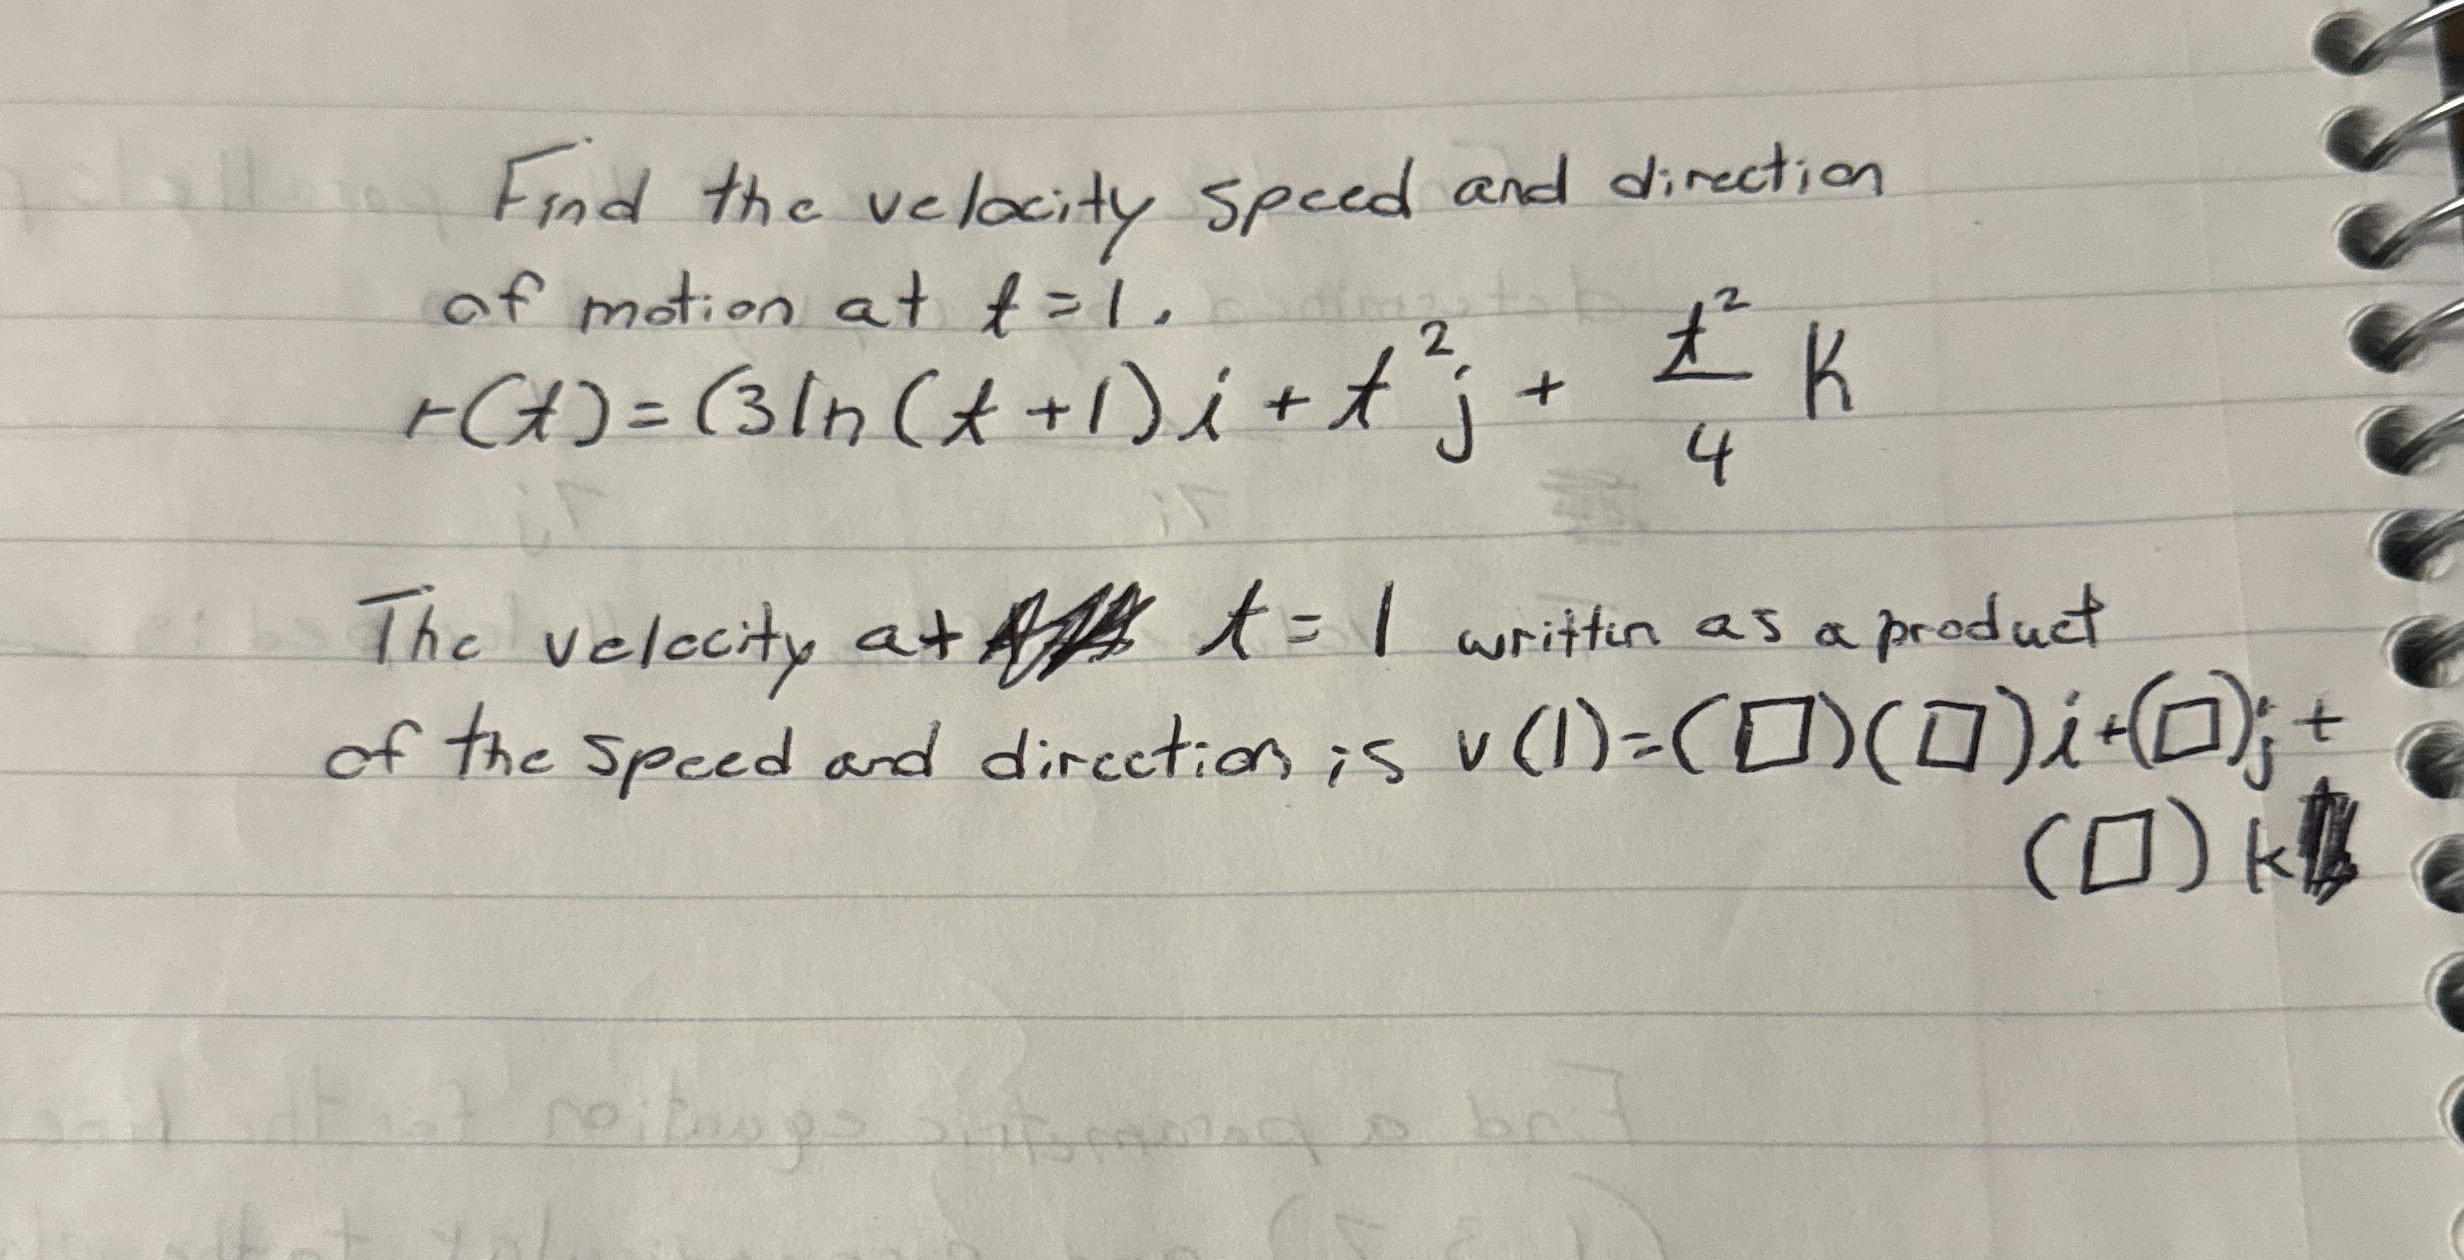 Find the velocity speed and direction
of motion at t=1.
r(t)=(3ln(t+1)i+t²j+ t²/4 k
The velocity at t=1 written as a product
of the speed and direction is v(1)=(□)(□)i+(□)j+
(□)k